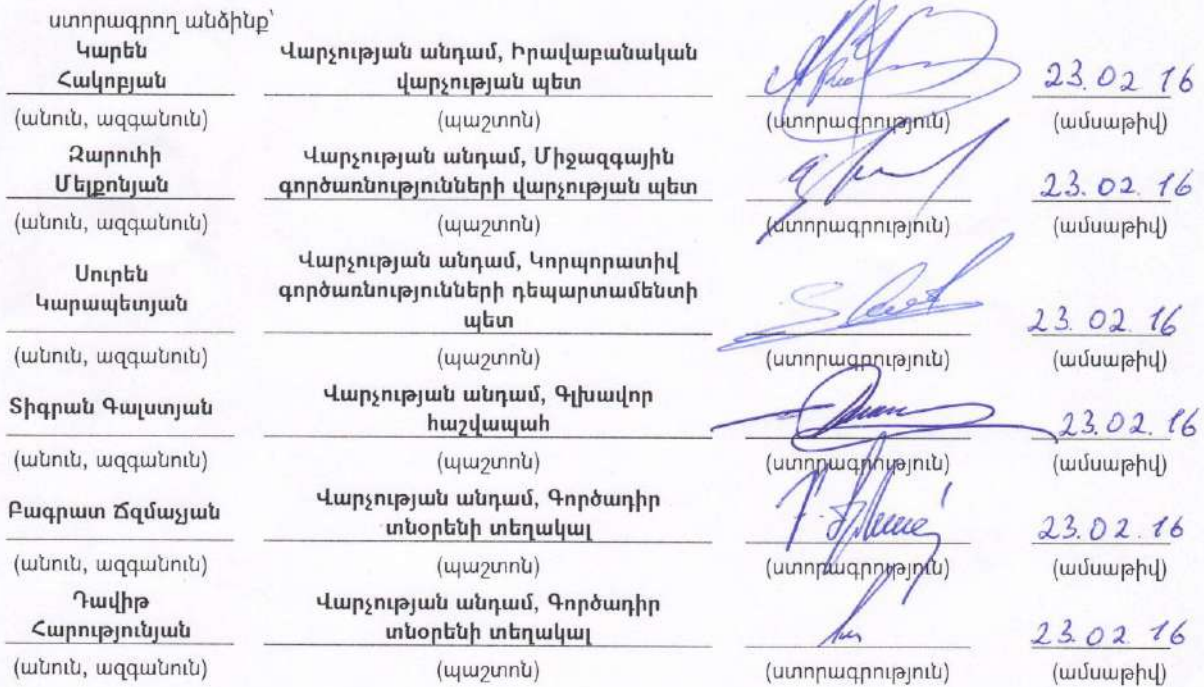 ստորագրող անձինք՝
Կարեն Վարչության անդամ, Իրավաբանական
Հակոբյան վարչության պետ 23.02.16
(անուն, ազգանուն) (պաշտոն) (ստորագրություն) (ամսաթիվ)
Զարուհի Վարչության անդամ, Միջազգային
Մելքոնյան գործառնությունների վարչության պետ 23.02.16
(անուն, ազգանուն) (պաշտոն) (ստորագրություն) (ամսաթիվ)
Սուրեն Վարչության անդամ, Կորպորատիվ
Կարապետյան գործառնությունների դեպարտամենտի
պետ 23.02.16
(անուն, ազգանուն) (պաշտոն) (ստորագրություն) (ամսաթիվ)
Տիգրան Գալստյան Վարչության անդամ, Գլխավոր
հաշվապահ 23.02.16
(անուն, ազգանուն) (պաշտոն) (ստորագրություն) (ամսաթիվ)
Բագրատ Ճզմաչյան Վարչության անդամ, Գործադիր
տնօրենի տեղակալ 23.02.16
(անուն, ազգանուն) (պաշտոն) (ստորագրություն) (ամսաթիվ)
Դավիթ Վարչության անդամ, Գործադիր
Հարությունյան տնօրենի տեղակալ 23.02.16
(անուն, ազգանուն) (պաշտոն) (ստորագրություն) (ամսաթիվ)